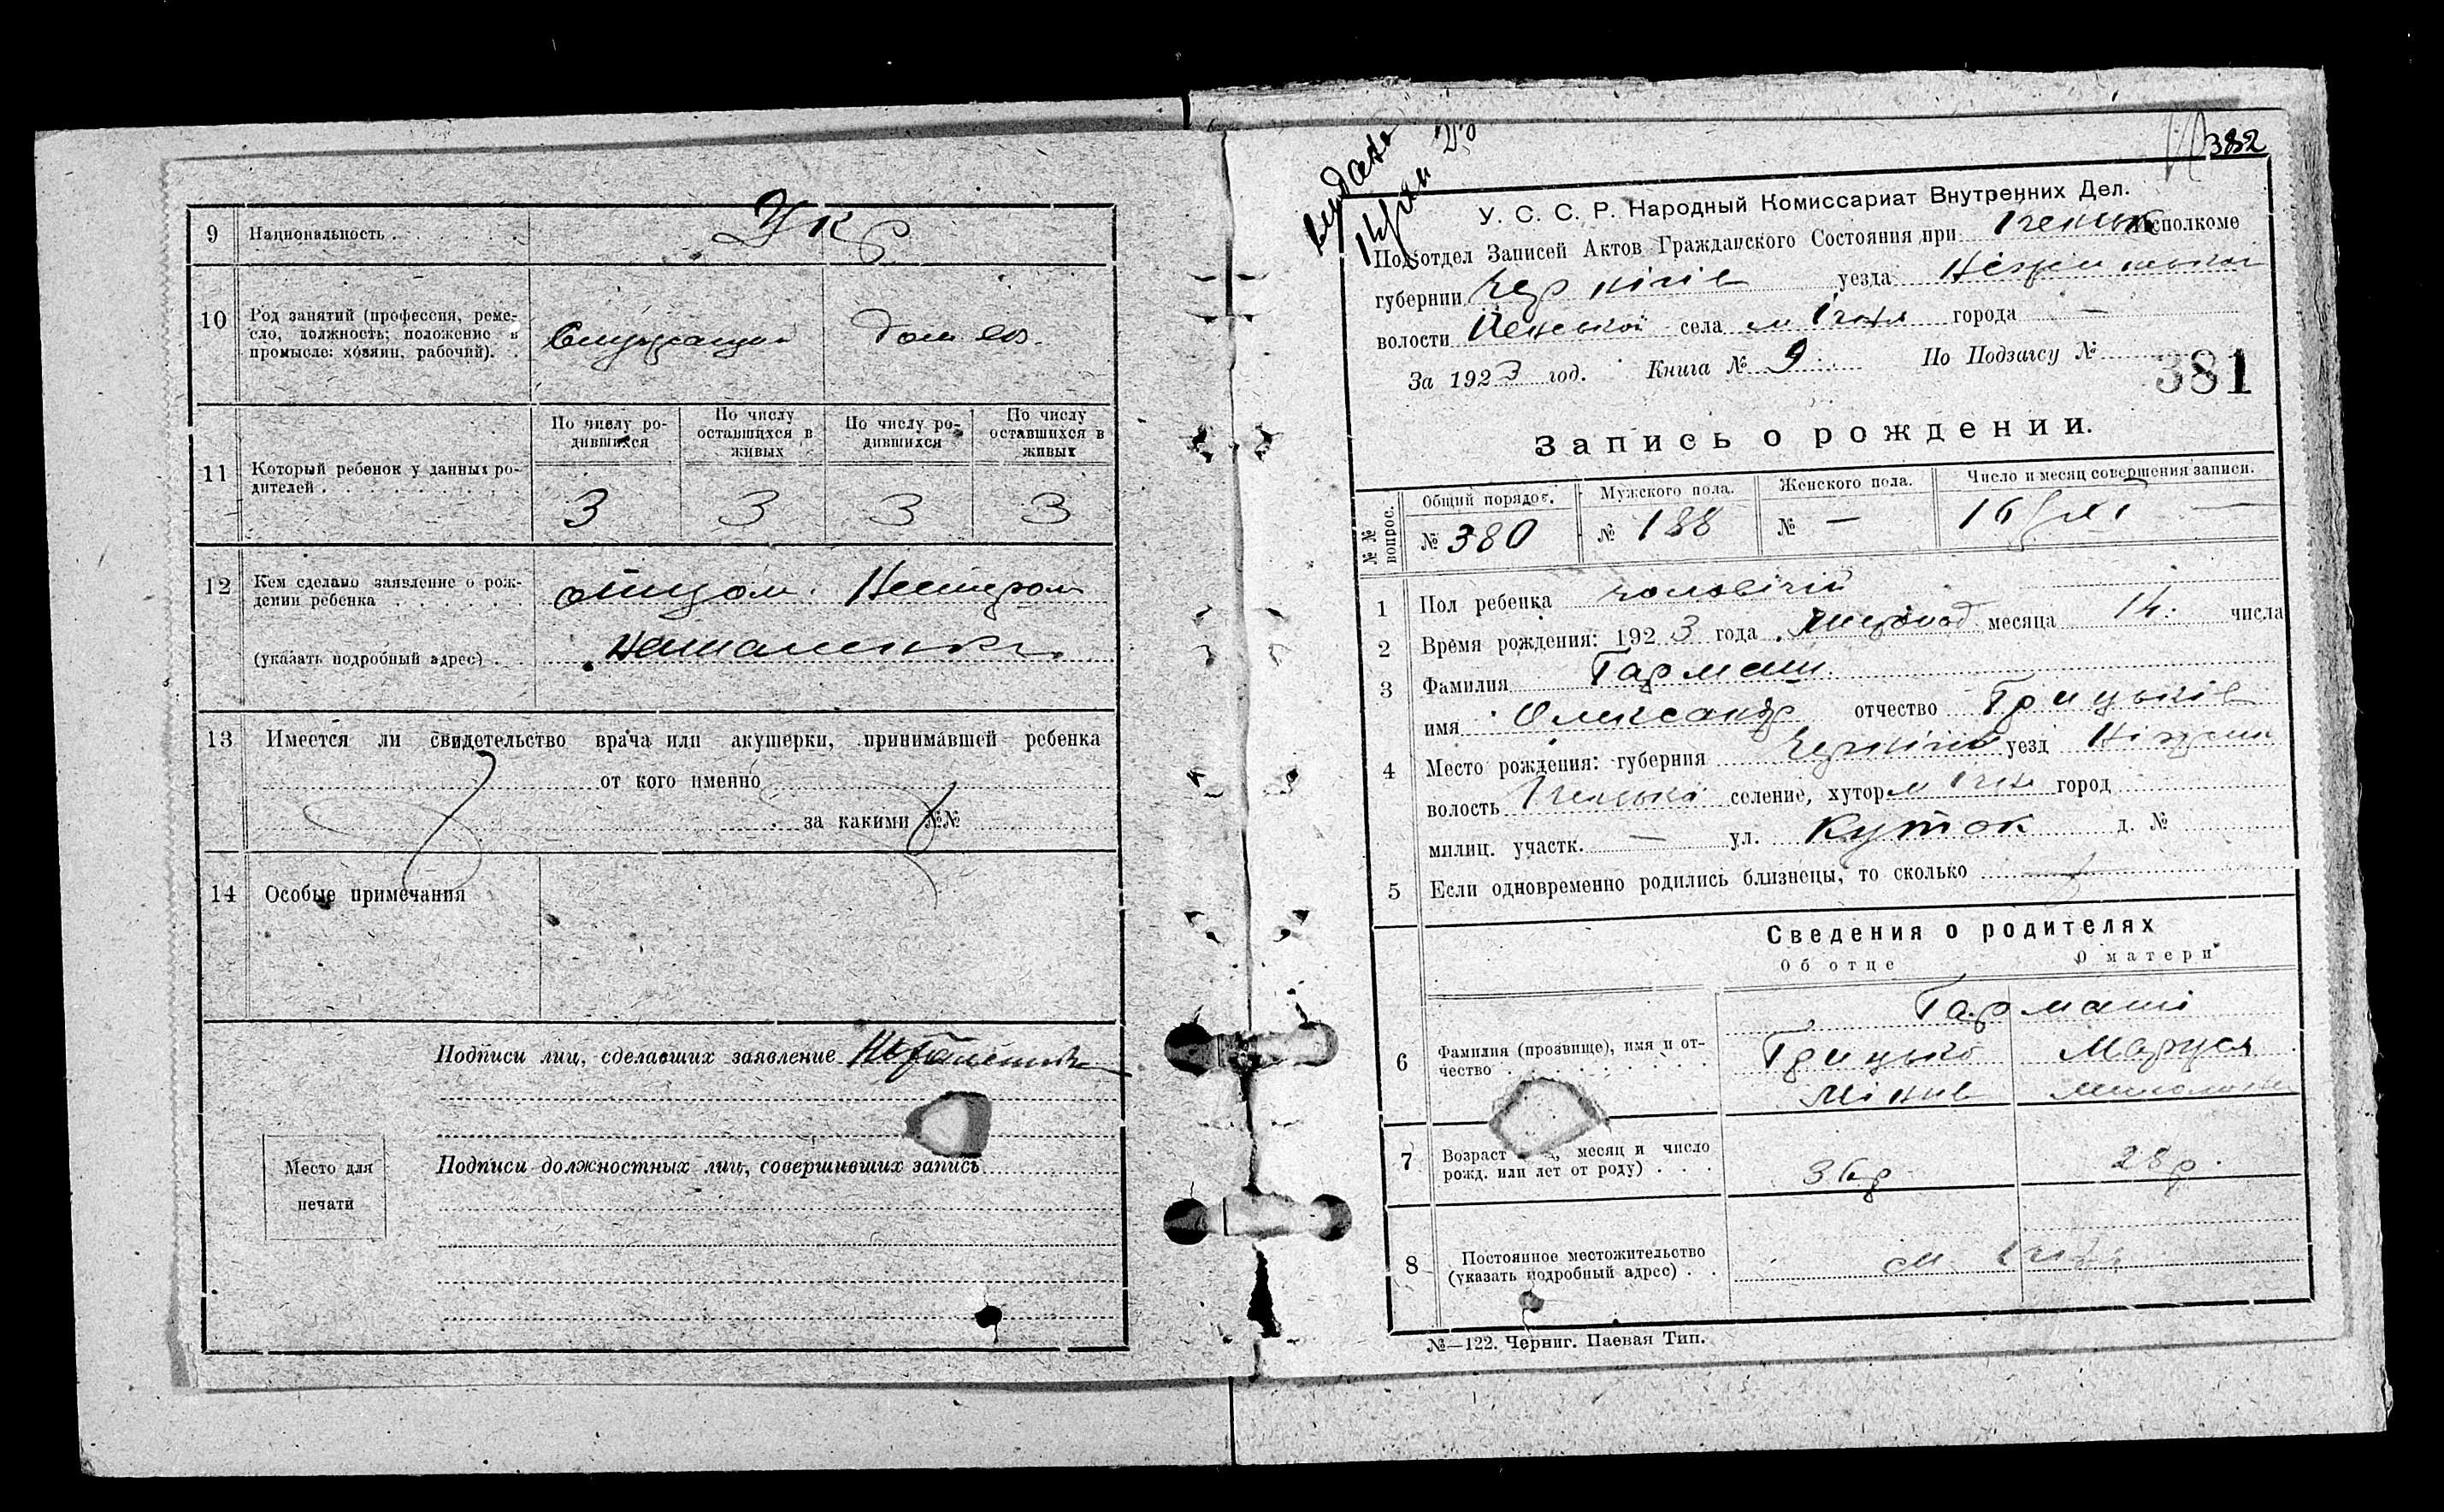 9 Национальность Укр
10 Род занятий (профессия, реме-
сло, должность; положение в
промысле: хозяин, рабочий). Служащий дом хоз.
11 Который ребенок у данных ро-
дителей
По числу ро-
дившихся
По числу
оставшихся в
живых
По числу ро-
дившихся
По числу
оставшихся в
живых
3 3 3 3
12 Кем сделано заявление о рож-
дении ребенка отцом. Нестером
(указать подробный адрес)
13 Имеется ли свидетельство врача или акушерки, принимавшей ребенка
от кого именно
за какими №№
14 Особые примечания
Подписи лиц, сделавших заявление
Место для
печати
Подписи должностных лиц, совершивших запись
382
У. С. С. Р. Народный Комиссариат Внутренних Дел.
Подотдел Записей Актов Гражданского Состояния при Іченськ Исполкоме
губернии Чернігів уезда Ніжинської
волости Іченської села м Ічня города —
За 1923 год. Книга № 9 По Подзагсу №
381
Запись о рождении.
№№ вопрос.
Общий порядов. Мужского пола. Женского пола. Число и месяц совершения записи.
№ 380 № 188 № — 16/XI —
1 Пол ребенка чоловічий
2 Время рождения: 1923 года Листопад месяца 14 числа
3 Фамилия Гармаш
имя Олександр отчество Грицьків
4 Место рождения: губерния Чернігів уезд Ніжин
волость Іченська селение, хутор м Ічня город
милиц. участк. — ул. Куток д. №
5 Если одновременно родились близнецы, то сколько
Сведения о родителях
Об отце О матери
Гармаші
6 Фамилия (прозвище), имя и от-
чество Грицько Маруся
7 Возраст месяц и число
рожд. или лет от роду) 36р 28р.
8 Постоянное местожительство
(указать подробный адрес) м Ічня
№—122. Черниг. Паевая Тип.